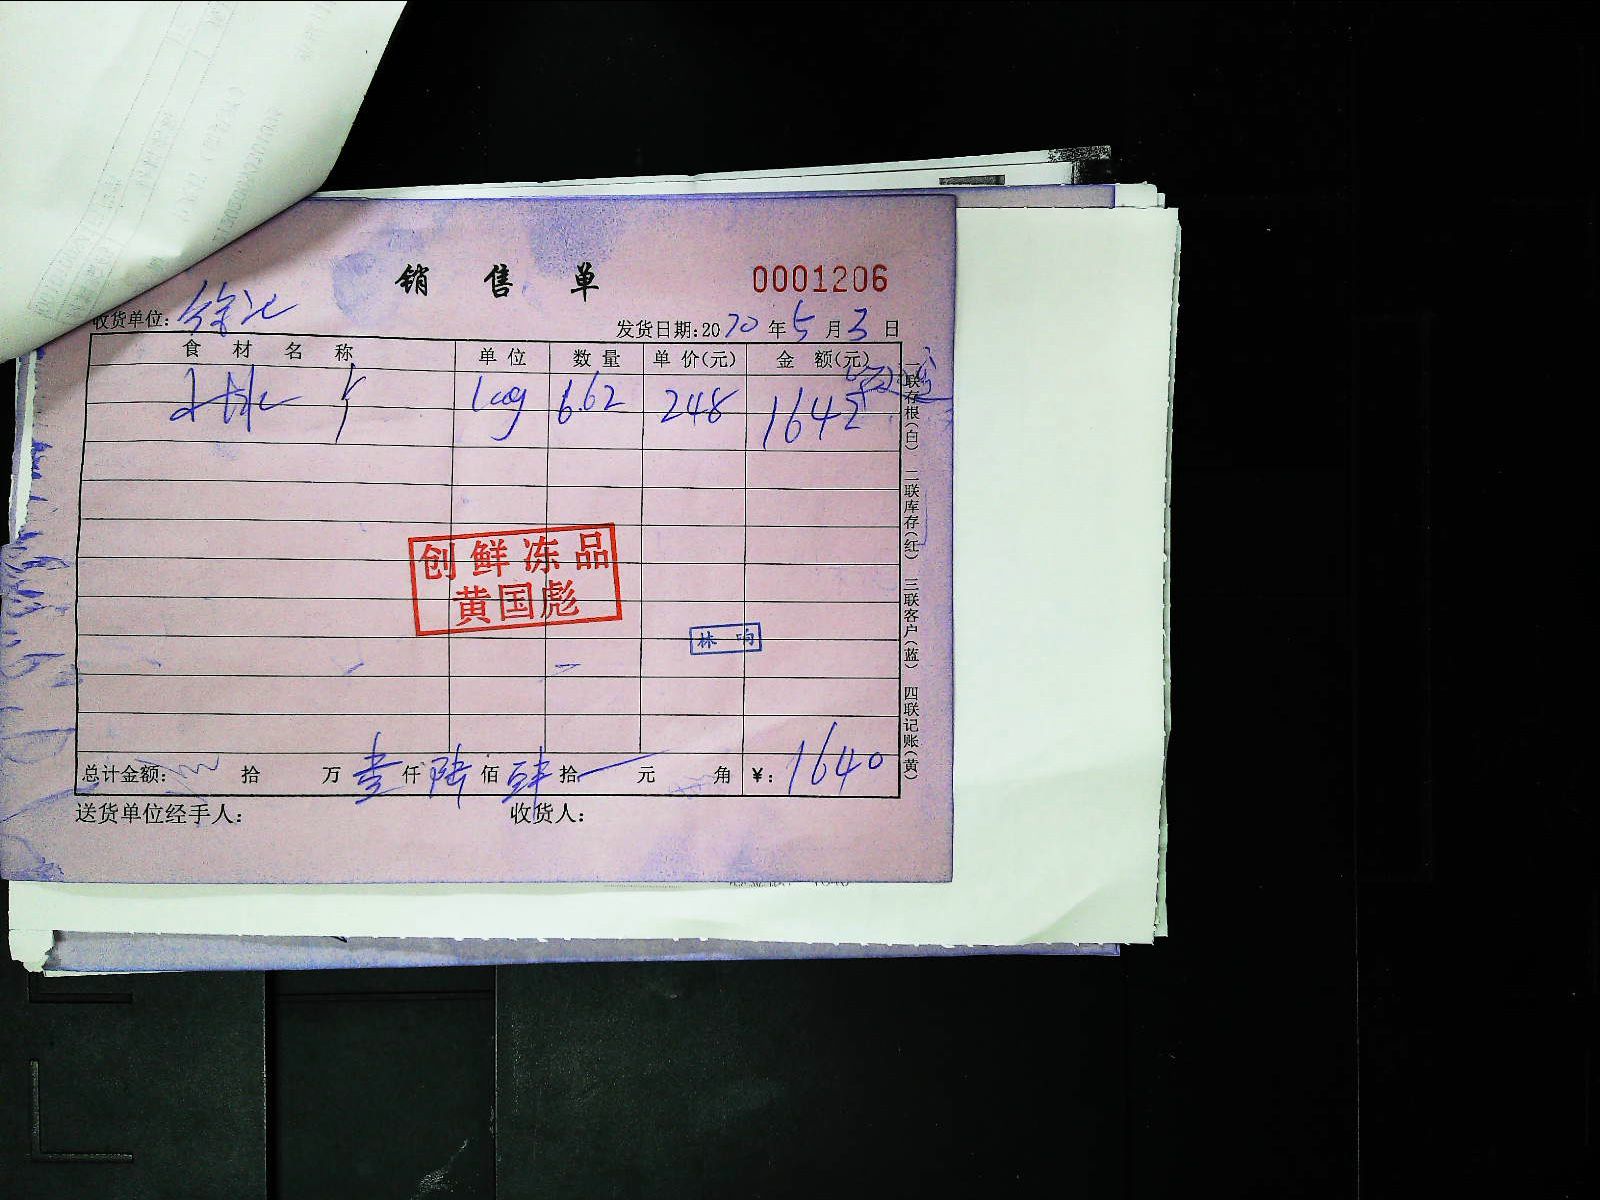 销售单
0001206
收货单位:徐记
发货日期:2020年5月3日
食材名称 单位 数量 单价(元) 金额(元)
kg 6.62 248 1642
创鲜冻品
黄国彪
林响
总计金额: 拾 万 壹仟 陆佰 肆拾 元 角 ¥:1640
送货单位经手人: 收货人:
一联存根(白) 二联库存(红) 三联客户(蓝) 四联记账(黄)